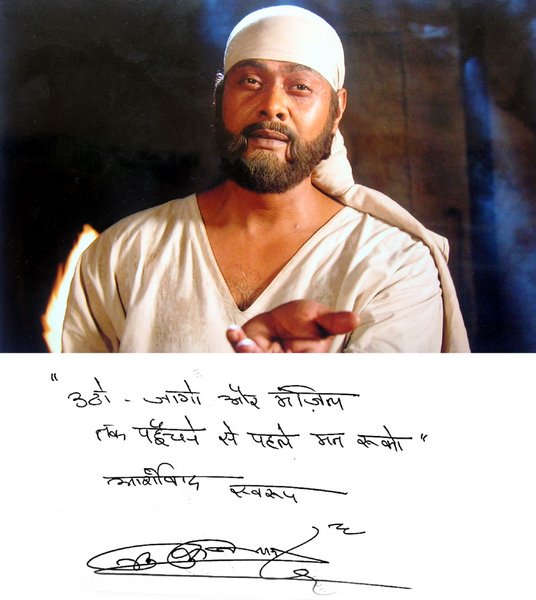 "उठो - जागो और मंज़िल
तक पहुँचने से पहले मत रूको"
आशीर्वाद स्वरूप